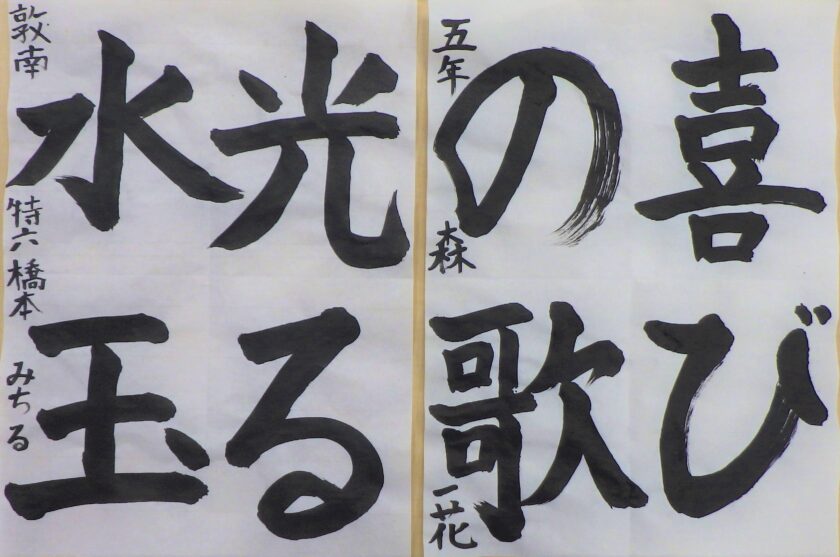 喜び
の歌
五年 森 一花
光る
水玉
敦南 特六 橋本 みちる